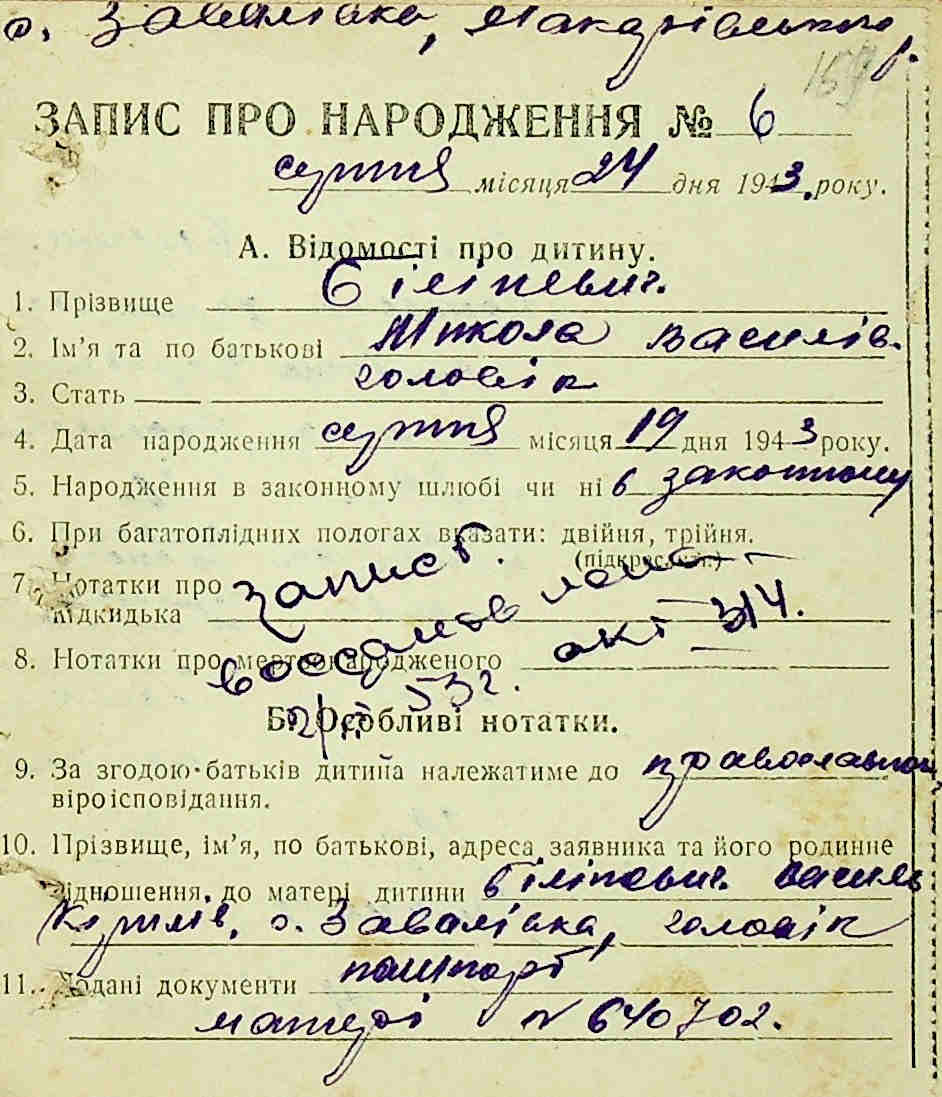 с. Завалівка, Макарівського р.
159
ЗАПИС ПРО НАРОДЖЕННЯ № 6
серпня місяця 24 дня 1943 року.
А. Відомості про дитину.
1. Прізвище Біліпевич.
2. Ім’я та по батькові Микола Василів.
3. Стать чоловік
4. Дата народження серпня місяця 19 дня 1943 року.
5. Народження в законному шлюбі чи ні в законному
6. При багатоплідних пологах вказати: двійня, трійня.
(підкреслити.)
7. Нотатки про
підкидька
запись
восстанов
акт 314.
8. Нотатки про мертвонародженого
53 г.
Б. Особливі нотатки.
9. За згодою батьків дитина належатиме до православного
віроісповідання.
10. Прізвище, ім’я, по батькові, адреса заявника та його родинне
відношення до матері дитини Біліпевич Василь
Кирилів, с. Завалівка, чоловік
11. Додані документи пашпорт
матері № 640702.